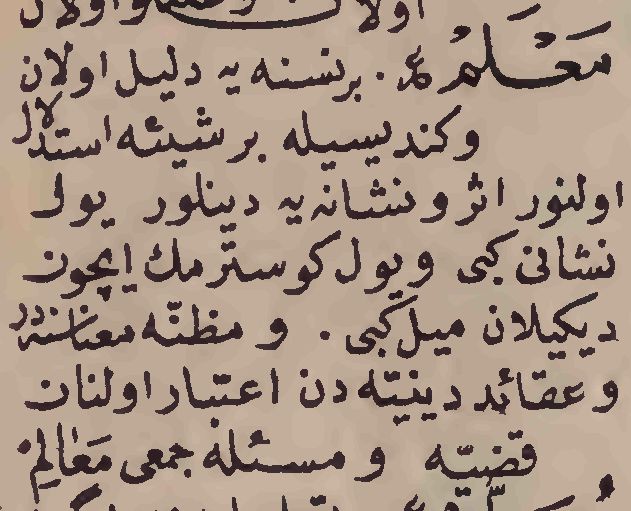 مَعْلَمْ ع. بر نسنه یه دلیل اولان
وکندیسیله بر شیئه استدلال
اولنور اثر و نشانه یه دینلور یول
نشانی کبی و یول کوسترمك ایچون
دیکیلان میل کبی . و مظنّه معناسنه در
و عقائد دینیّه دن اعتبار اولنان
قضیّه و مسئله جمعی مَعَالِمْ